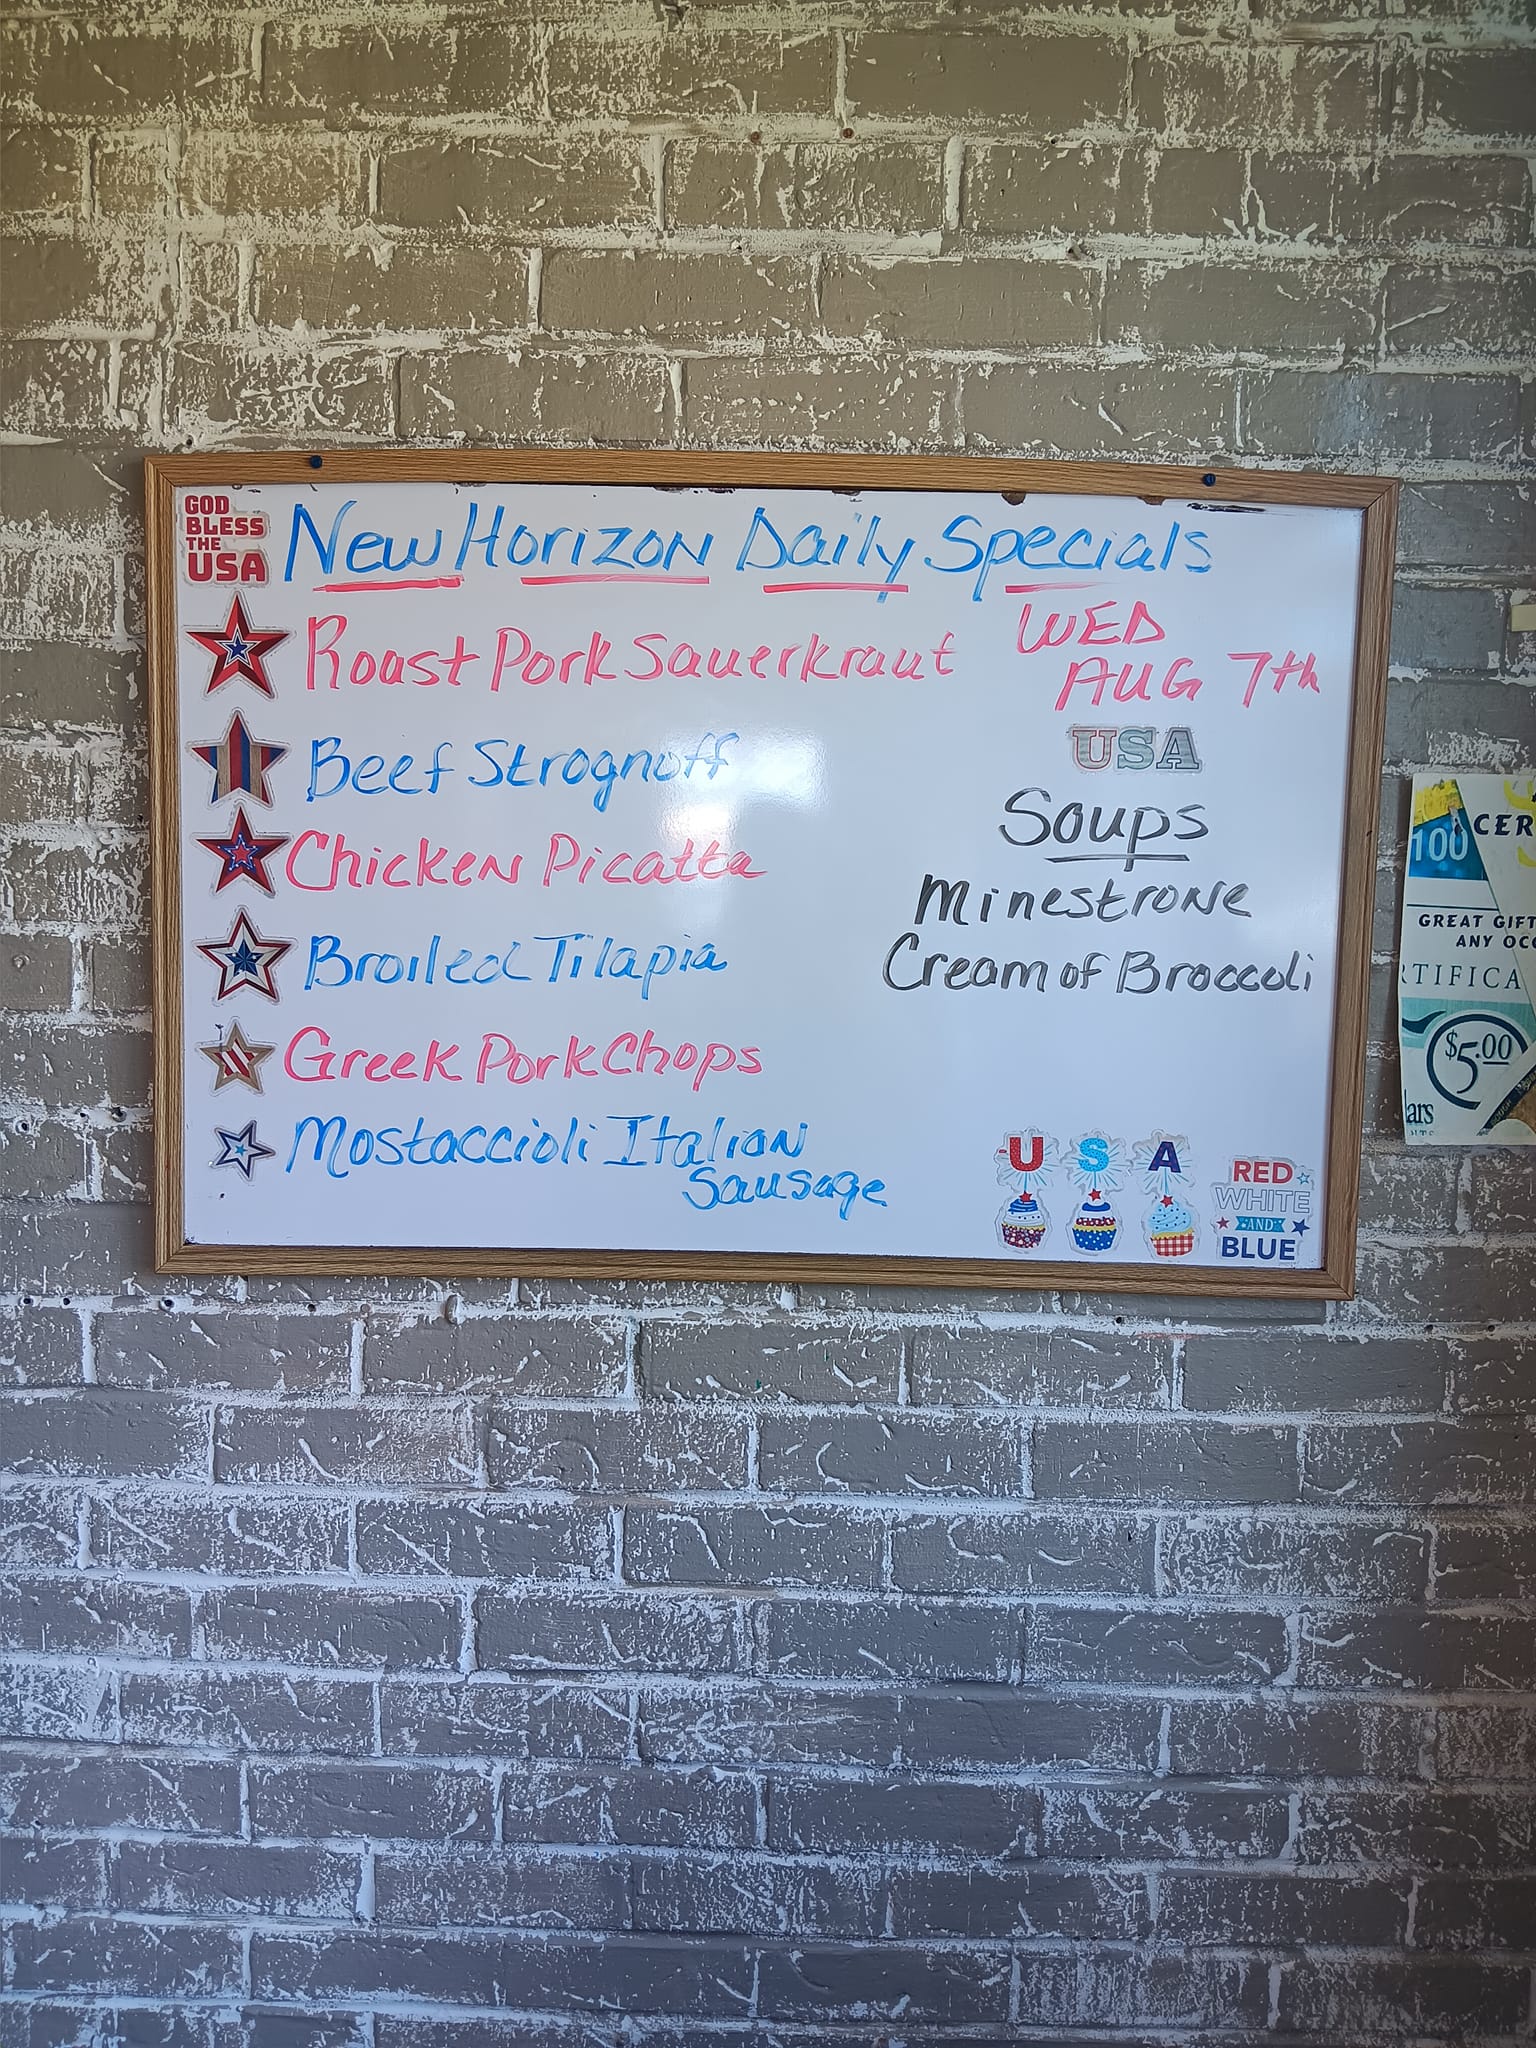 GOD
BLESS
THE
USA
New Horizon Daily Specials
Roast Pork Sauerkraut
Beef Strognoff
Chicken Picatta
Broiled Tilapia
Greek Pork Chops
Mostaccioli Italian
Sausage
WED
AUG 7th
USA
Soups
Minestrone
Cream of Broccoli
U S A
RED
WHITE
AND
BLUE
100
CER
GREAT GIFT
ANY OCC
RTIFICA
$5.00
ars